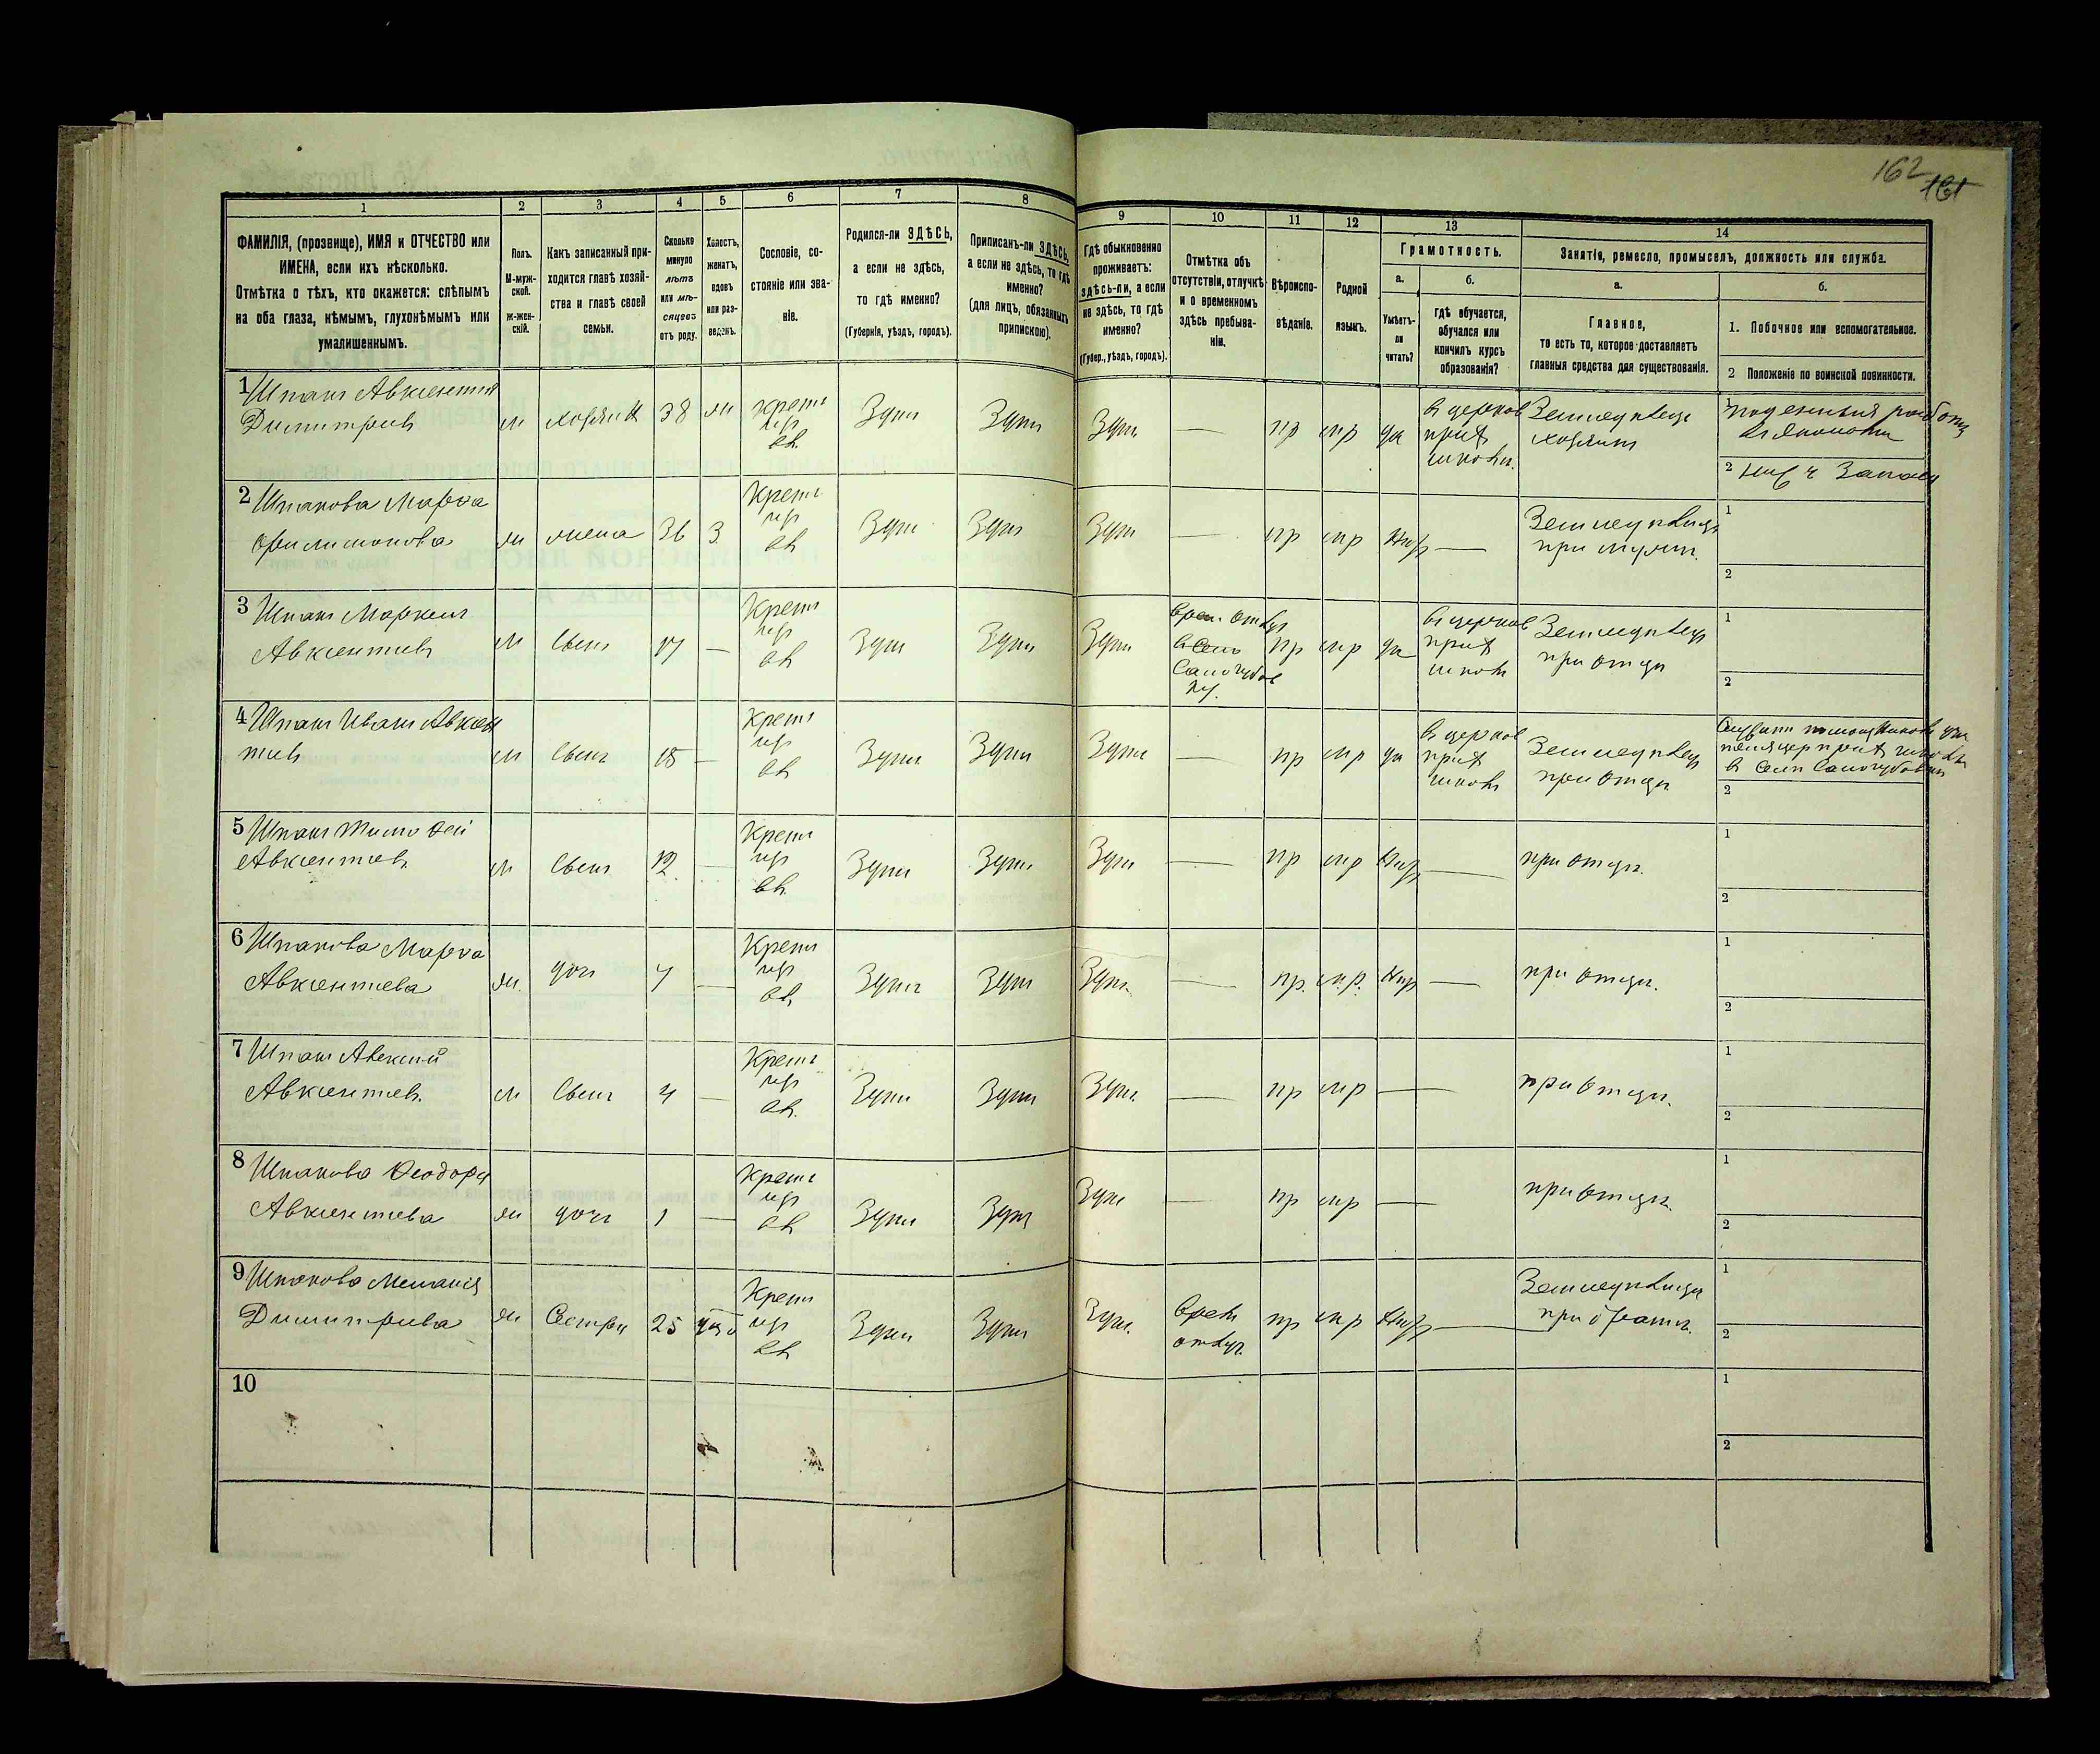 162
161
1
2
3
4
5
6
7
8
9
10
11
12
13
14
ФАМИЛІЯ, (прозвище), ИМЯ и ОТЧЕСТВО или
ИМЕНА, если ихъ нѣсколько.
Отмѣтка о тѣхъ, кто окажется: слѣпымъ
на оба глаза, нѣмымъ, глухонѣмымъ или
умалишеннымъ.
Полъ.
М-муж-
ской.
Ж-жен-
скій.
Какъ записанный при-
ходится главѣ хозяй-
ства и главѣ своей
семьи.
Сколько
минуло
лѣтъ
или мѣ-
сяцевъ
отъ роду.
Холостъ,
женатъ,
вдовъ
или раз-
веденъ.
Сословіе, со-
стояніе или зва-
ніе.
Родился-ли ЗДѢСЬ,
а если не здѣсь,
то гдѣ именно?
(Губернія, уѣздъ, городъ).
Приписанъ-ли ЗДѢСЬ,
а если не здѣсь, то гдѣ
именно?
(для лицъ, обязанныхъ
припискою).
Гдѣ обыкновенно
проживаетъ:
здѣсь-ли, а если
не здѣсь, то гдѣ
именно?
(Губер., уѣздъ, городъ).
Отмѣтка объ
отсутствіи, отлучкѣ
и о временномъ
здѣсь пребыва-
ніи.
Вѣроиспо-
вѣданіе.
Родной
языкъ.
Грамотность.
а.
Умѣетъ-
ли
читать?
б.
гдѣ обучается,
обучался или
кончилъ курсъ
образованія?
Занятія, ремесло, промыселъ, должность или служба.
а.
Главное,
то есть то, которое доставляетъ
главныя средства для существованія.
б.
1. Побочное или вспомогательное.
2 Положеніе по воинской повинности.
1 Шпакъ Авксентій
Димитріевъ
м
хозяинъ
38
ж
Крестъ
Здѣсь
Здѣсь
Здѣсь
—
пр
мр
да
въ церков
прих
школѣ.
Земледѣлецъ
хозяинъ
1
2
2 Шпакова Марѳа
Филимонова
ж
жена
36
З
Крестъ
Здѣсь
Здѣсь
Здѣсь
—
пр
мр
—
Земледѣлица
при мужѣ.
1
2
3 Шпакъ Маркелъ
Авксентіевъ
м
Сынъ
17
—
Крестъ
Здѣсь
Здѣсь
Здѣсь
пр
мр
да
въ церков
прих
школѣ
Земледѣлецъ
при отцѣ
1
2
4 Шпакъ Иванъ Авксен
тіевъ
м
Сынъ
15
—
Крестъ
Здѣсь
Здѣсь
Здѣсь
—
пр
мр
да
въ церков
прих
школѣ
Земледѣлецъ
при отцѣ
2
5 Шпакъ Тимоѳей
Авксентіевъ
м
Сынъ
12
—
Крестъ
Здѣсь
Здѣсь
Здѣсь
—
пр
мр
—
при отцѣ.
1
2
6 Шпакова Марѳа
Авксентіева
ж.
дочь
7
—
Крестъ
Здѣсь
Здѣсь
Здѣсь.
—
пр.
м.р.
—
при отцѣ.
1
2
7 Шпакъ Алексѣй
Авксентіевъ.
м
Сынъ
4
—
Крестъ
Здѣсь
Здѣсь
Здѣсь.
—
пр
мр
—
при отцѣ.
1
2
8 Шпакова Ѳеодора
Авксентіева
ж
дочь
1
—
Крестъ
Здѣсь
Здѣсь
Здѣсь
—
пр
мр
—
при отцѣ.
1
2
9 Шпакова Меланія
Димитріева
ж
Сестра
25
Крестъ
Здѣсь
Здѣсь
Здѣсь.
Врем
отлуч.
пр
мр
—
Земледѣлица
при братѣ.
1
2
10
1
2